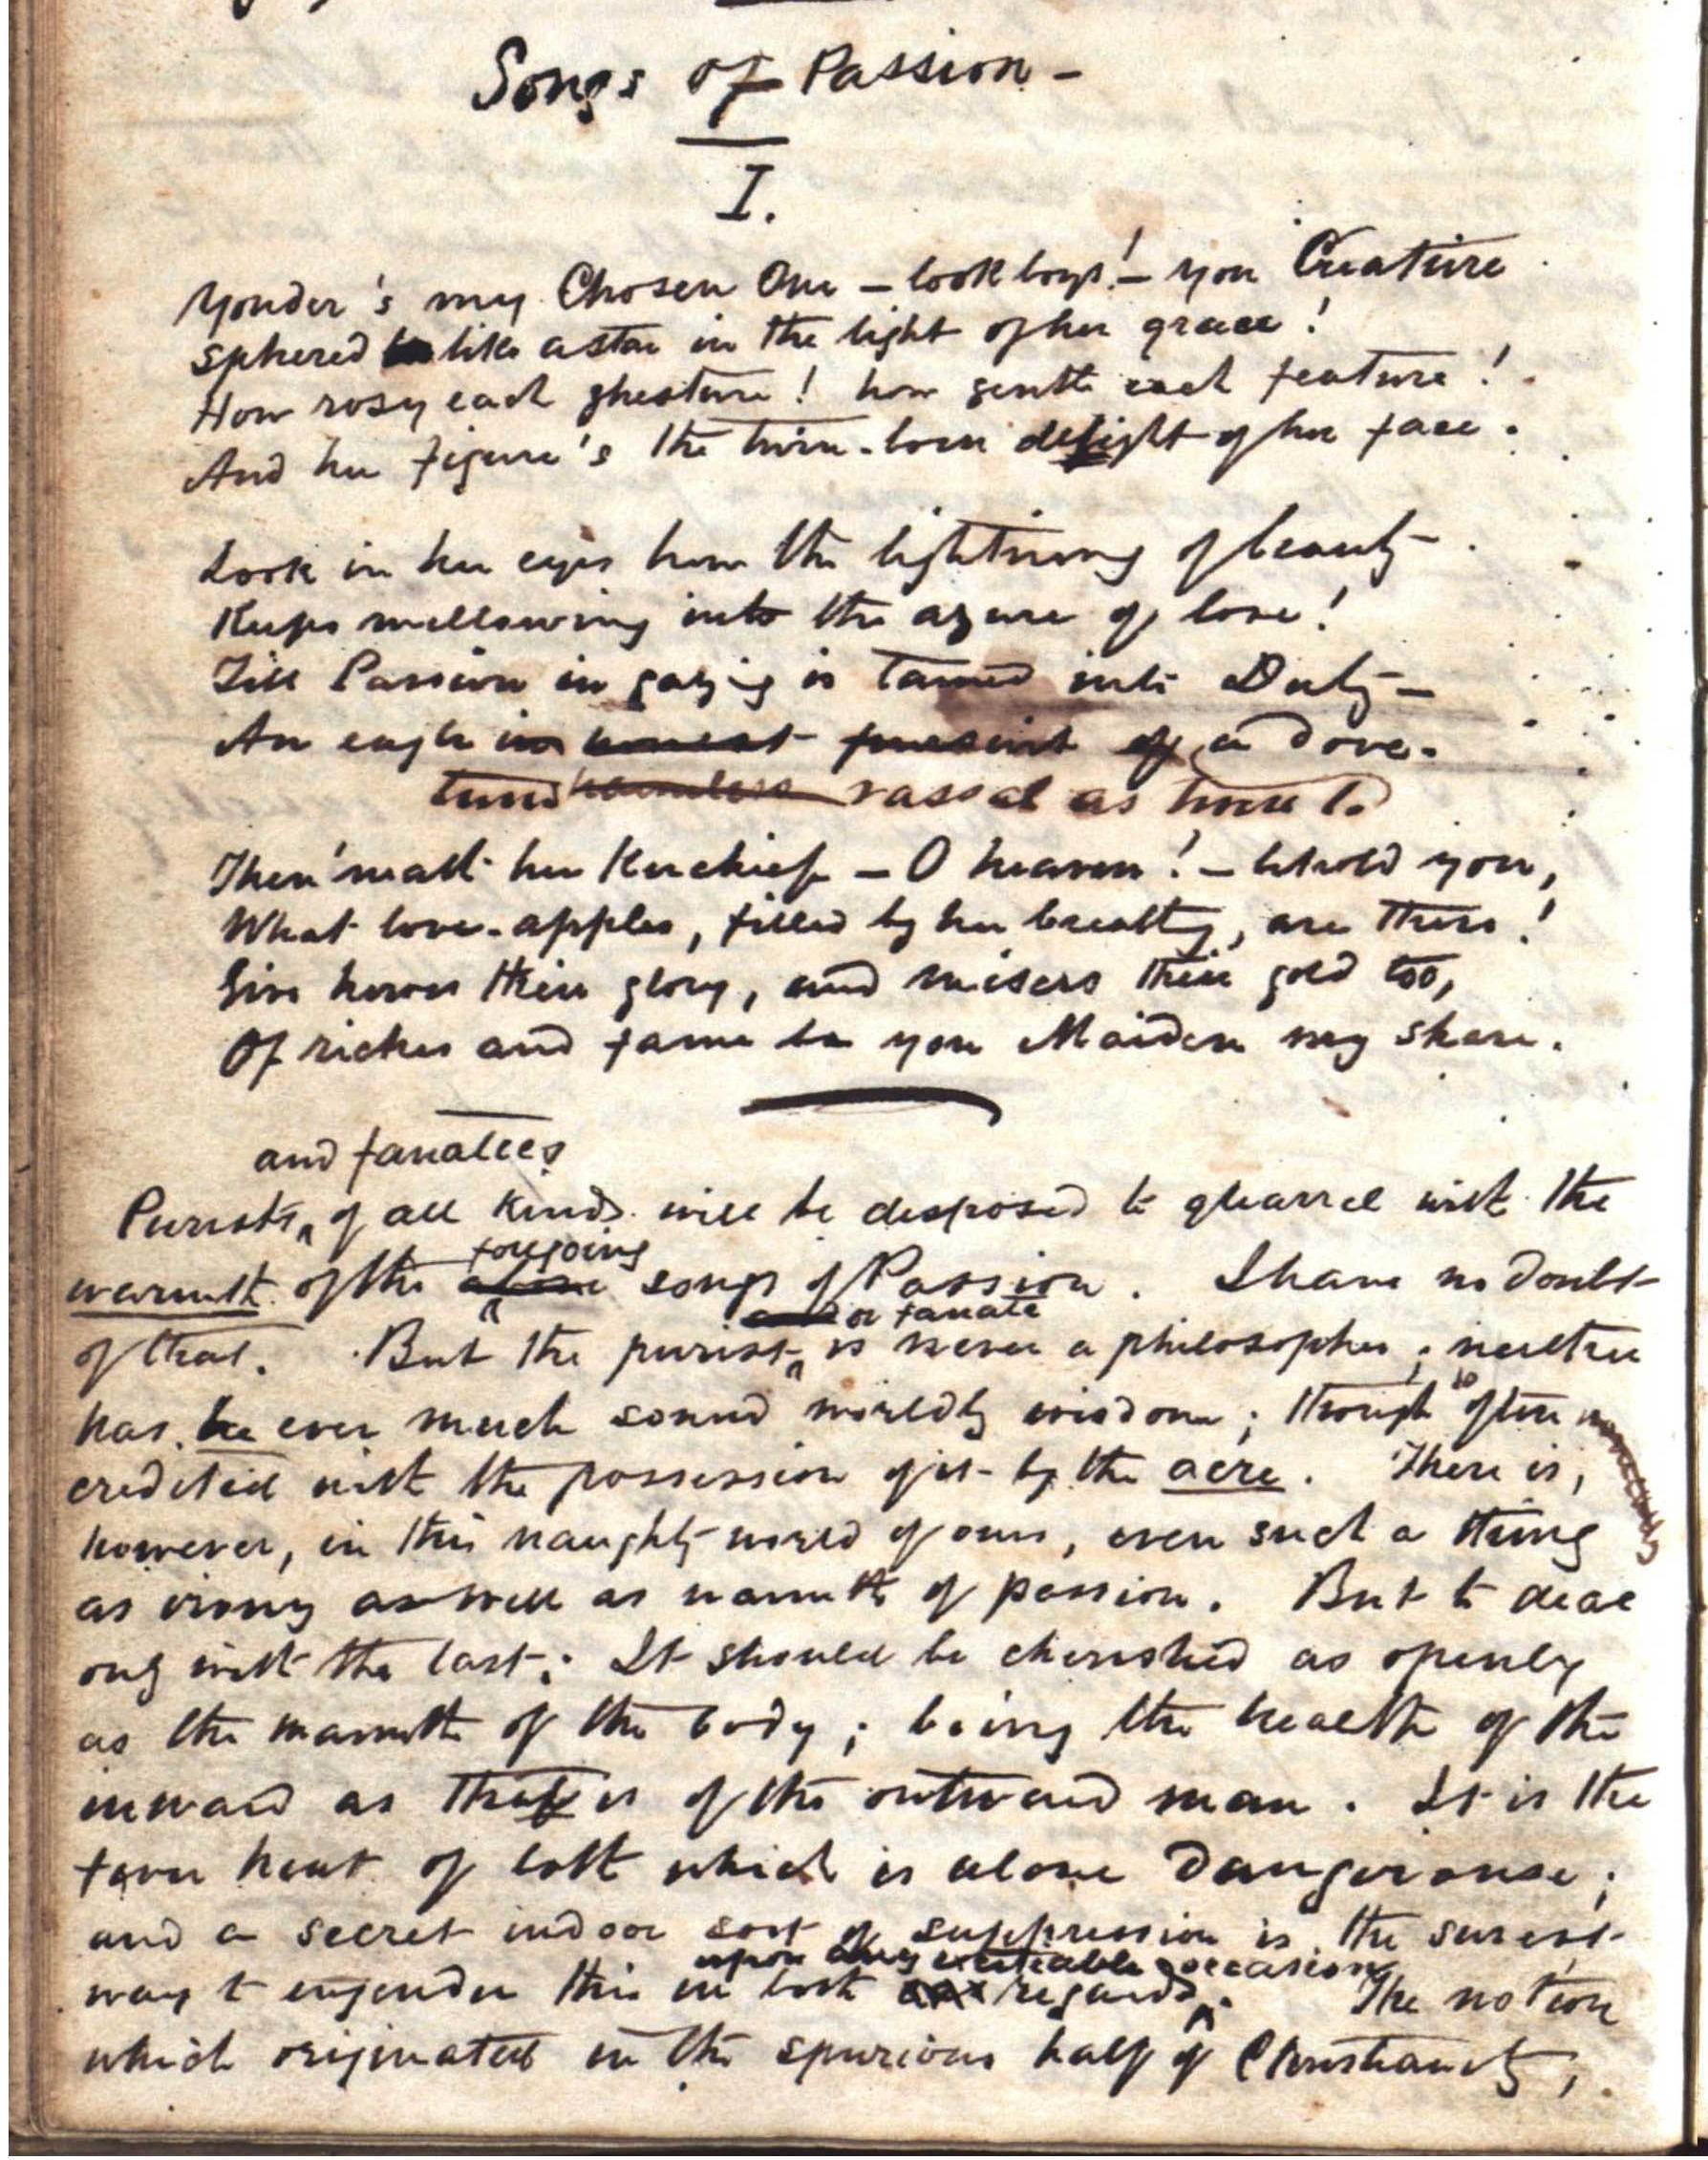 Songs of Passion –
I.
Yonder's my Chosen One – look boys! – yon Creature
sphered like a star in the light of her grace!
How rosy each ghesture! how gentle each feature!
And her figure's the twin-born delight of her face.
Look in her eyes how the lightning of beauty
Keeps mellowing into the azure of love!
Till Passion in gazing is tamed into Duty –
An eagle in honest pursuit of a dove.
turned harmless vassal as true to
Then 'neath her Kerchief – O heaven! – behold you,
What love-apples, filled by her breath, are there!
Give heroes their glory, and misers their gold too,
Of riches and fame be yon Maiden my share.
and fanatees
Purists, of all kinds will be desposed to qluarrel with the
foregoing
warmth of the above songs of Passion. I have no doubt
or fanate
of that. But the purist is never a philosopher; neither
has he ever much sound worldly wisdom; though so often
credited with the possession of it by the acre. There is,
however, in this naughty world of ours, even such a thing
as irony as well as warmth of passion. But to deal
only with the last: It should be cherished as openly
as the warmth of the body; being the health of the
inward as that is of the outward man. It is the
fever heat of both which is alone dangerouse;
and a secret indoor sort of suppression is the surest
upon any exciteable occasion
way to engender this in both regards. The notion
which originated in the spurious half of Christianity,